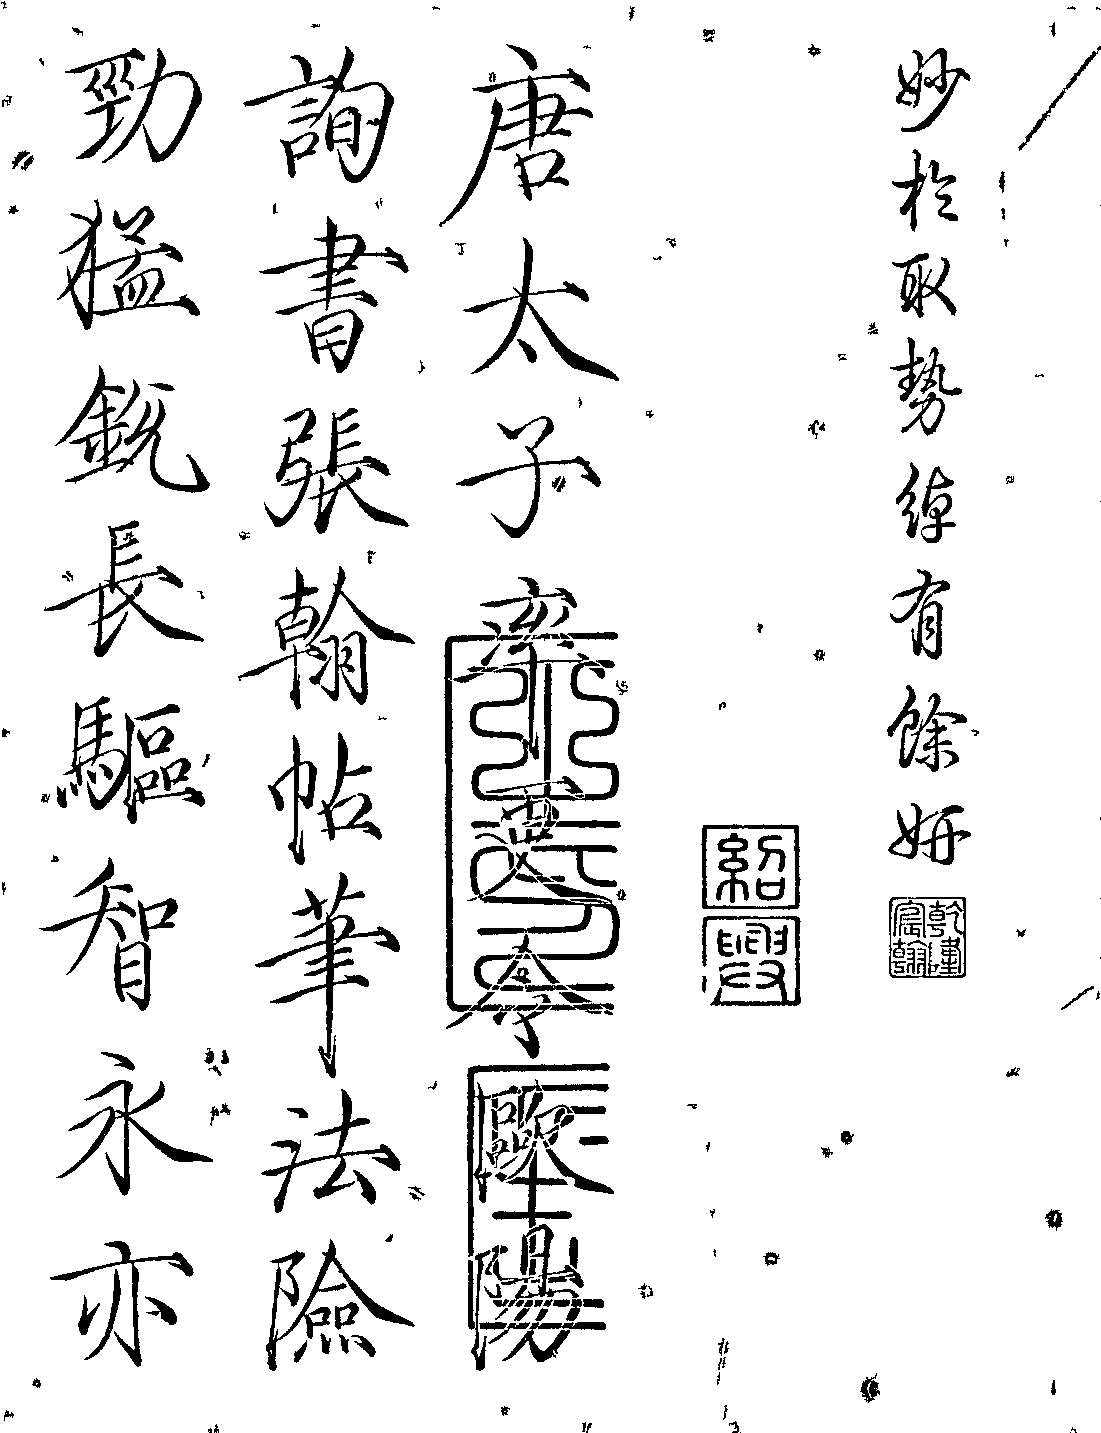 妙於取勢綽有餘妍
乾隆宸翰
紹興
唐太子率更令歐陽
詢書張翰帖筆法險
勁猛銳長驅智永亦